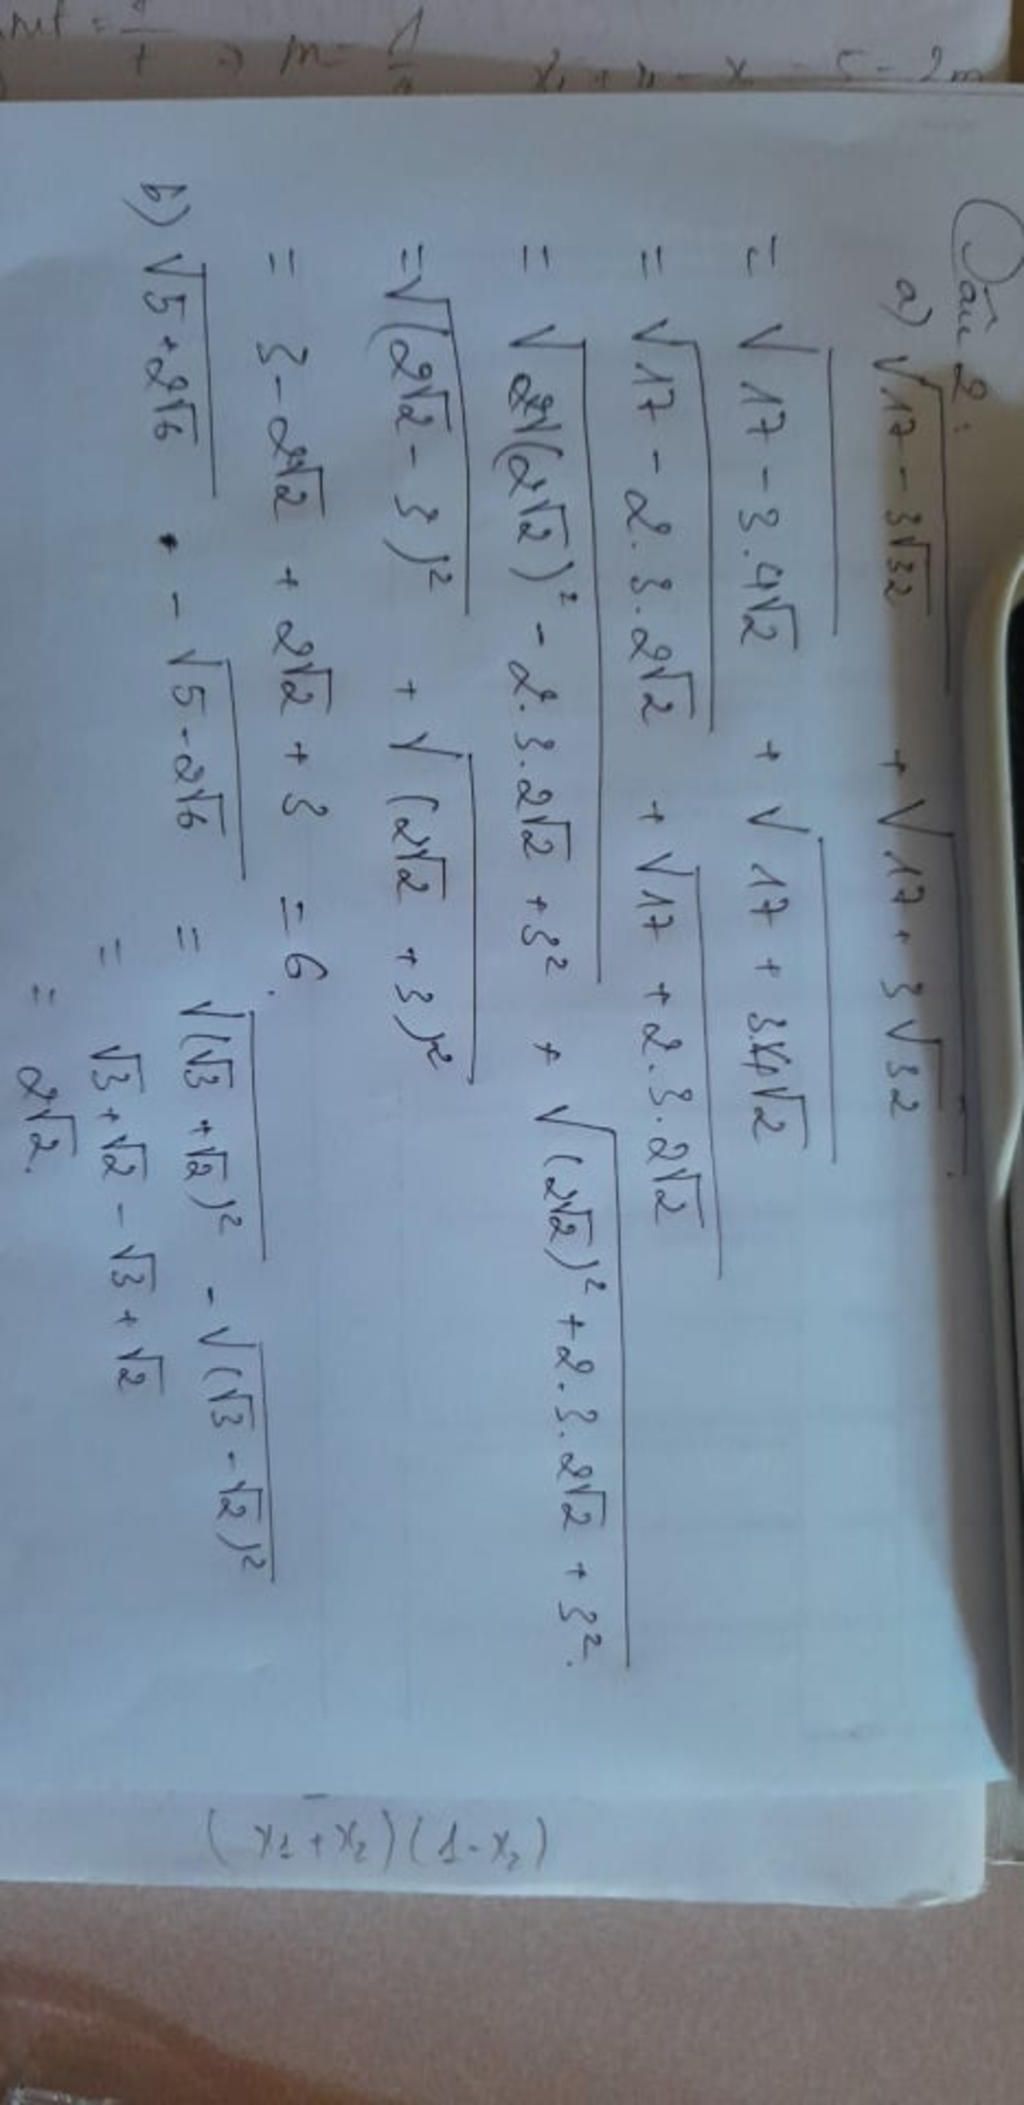 Câu 2:
a) √(17 - 3√32) + √(17 + 3√32)
= √(17 - 3.4√2) + √(17 + 3.4√2)
= √(17 - 2.3.2√2) + √(17 + 2.3.2√2)
= √((2√2)² - 2.3.2√2 + 3²) + √((2√2)² + 2.3.2√2 + 3²).
= √((2√2 - 3)²) + √((2√2 + 3)²)
= 3 - 2√2 + 2√2 + 3 = 6.
b) √(5 + 2√6) - √(5 - 2√6) = √((√3 + √2)²) - √((√3 - √2)²)
= √3 + √2 - √3 + √2
= 2√2.
(1 - x₂)(x₂ + x₁)